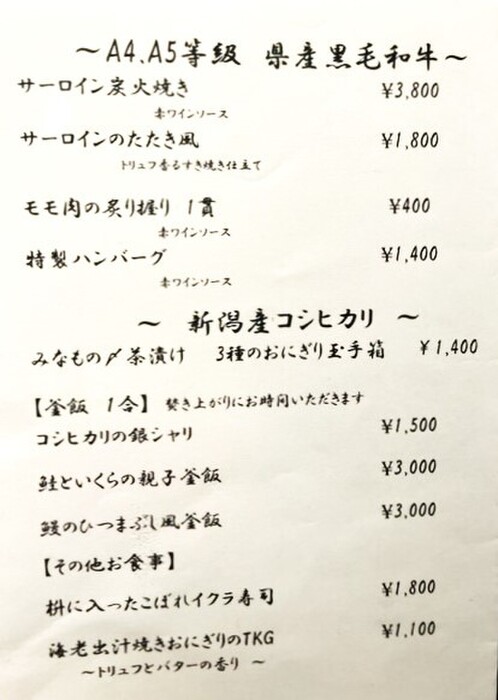 ～A4、A5等級 県産黒毛和牛～
サーロイン炭火焼き ¥3,800
赤ワインソース
サーロインのたたき風 ¥1,800
トリュフ香るすき焼き仕立て
モモ肉の炙り握り 1貫 ¥400
赤ワインソース
特製ハンバーグ ¥1,400
赤ワインソース
～ 新潟産コシヒカリ ～
みなもの〆茶漬け 3種のおにぎり玉手箱 ¥1,400
【釜飯 1合】 焚き上がりにお時間いただきます
コシヒカリの銀シャリ ¥1,500
鮭といくらの親子釜飯 ¥3,000
鰻のひつまぶし風釜飯 ¥3,000
【その他お食事】
枡に入ったこぼれイクラ寿司 ¥1,800
海老出汁焼きおにぎりのTKG ¥1,100
～トリュフとバターの香り ～